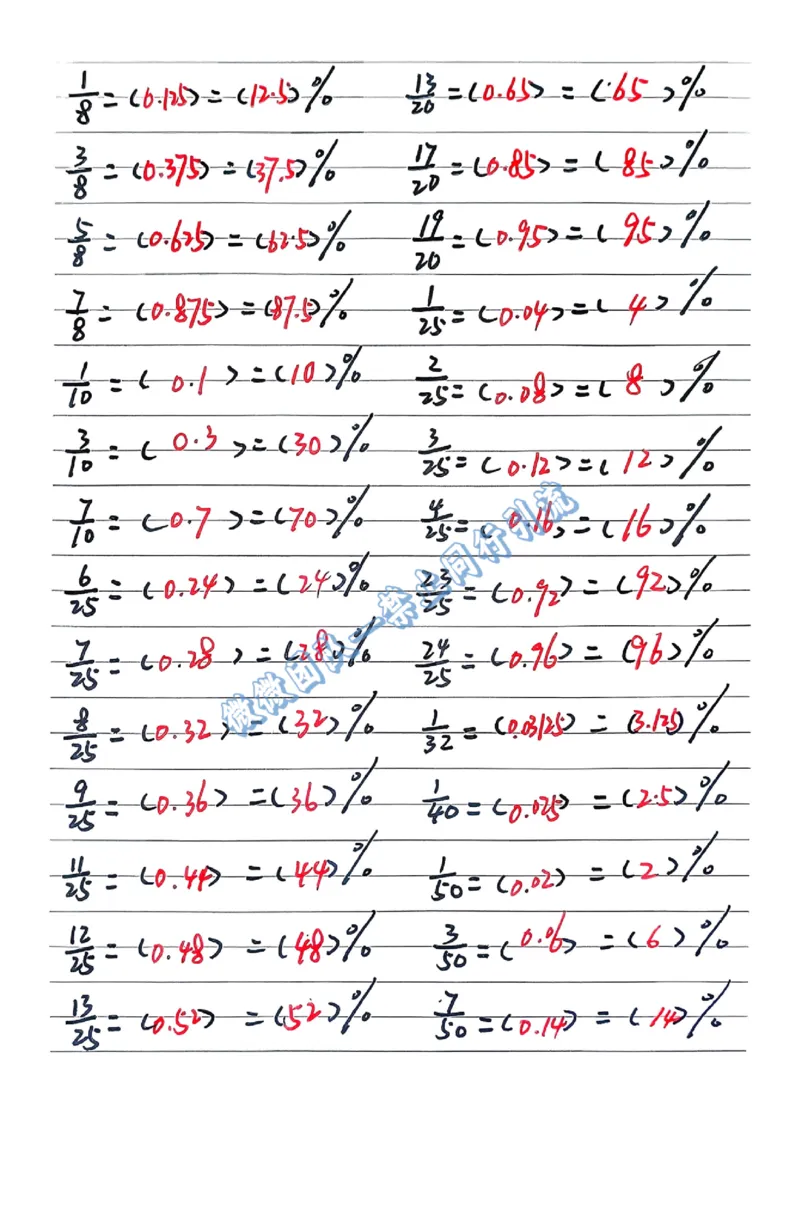 1/8 = (0.125) = (12.5)%
3/8 = (0.375) = (37.5)%
5/8 = (0.625) = (62.5)%
7/8 = (0.875) = (87.5)%
1/10 = (0.1) = (10)%
3/10 = (0.3) = (30)%
7/10 = (0.7) = (70)%
6/25 = (0.24) = (24)%
7/25 = (0.28) = (28)%
8/25 = (0.32) = (32)%
9/25 = (0.36) = (36)%
11/25 = (0.44) = (44)%
12/25 = (0.48) = (48)%
13/25 = (0.52) = (52)%
13/20 = (0.65) = (65)%
17/20 = (0.85) = (85)%
19/20 = (0.95) = (95)%
1/25 = (0.04) = (4)%
2/25 = (0.08) = (8)%
3/25 = (0.12) = (12)%
4/25 = (0.16) = (16)%
23/25 = (0.92) = (92)%
24/25 = (0.96) = (96)%
1/32 = (0.03125) = (3.125)%
1/40 = (0.025) = (2.5)%
1/50 = (0.02) = (2)%
3/50 = (0.06) = (6)%
7/50 = (0.14) = (14)%
微微团队一禁止同行引流